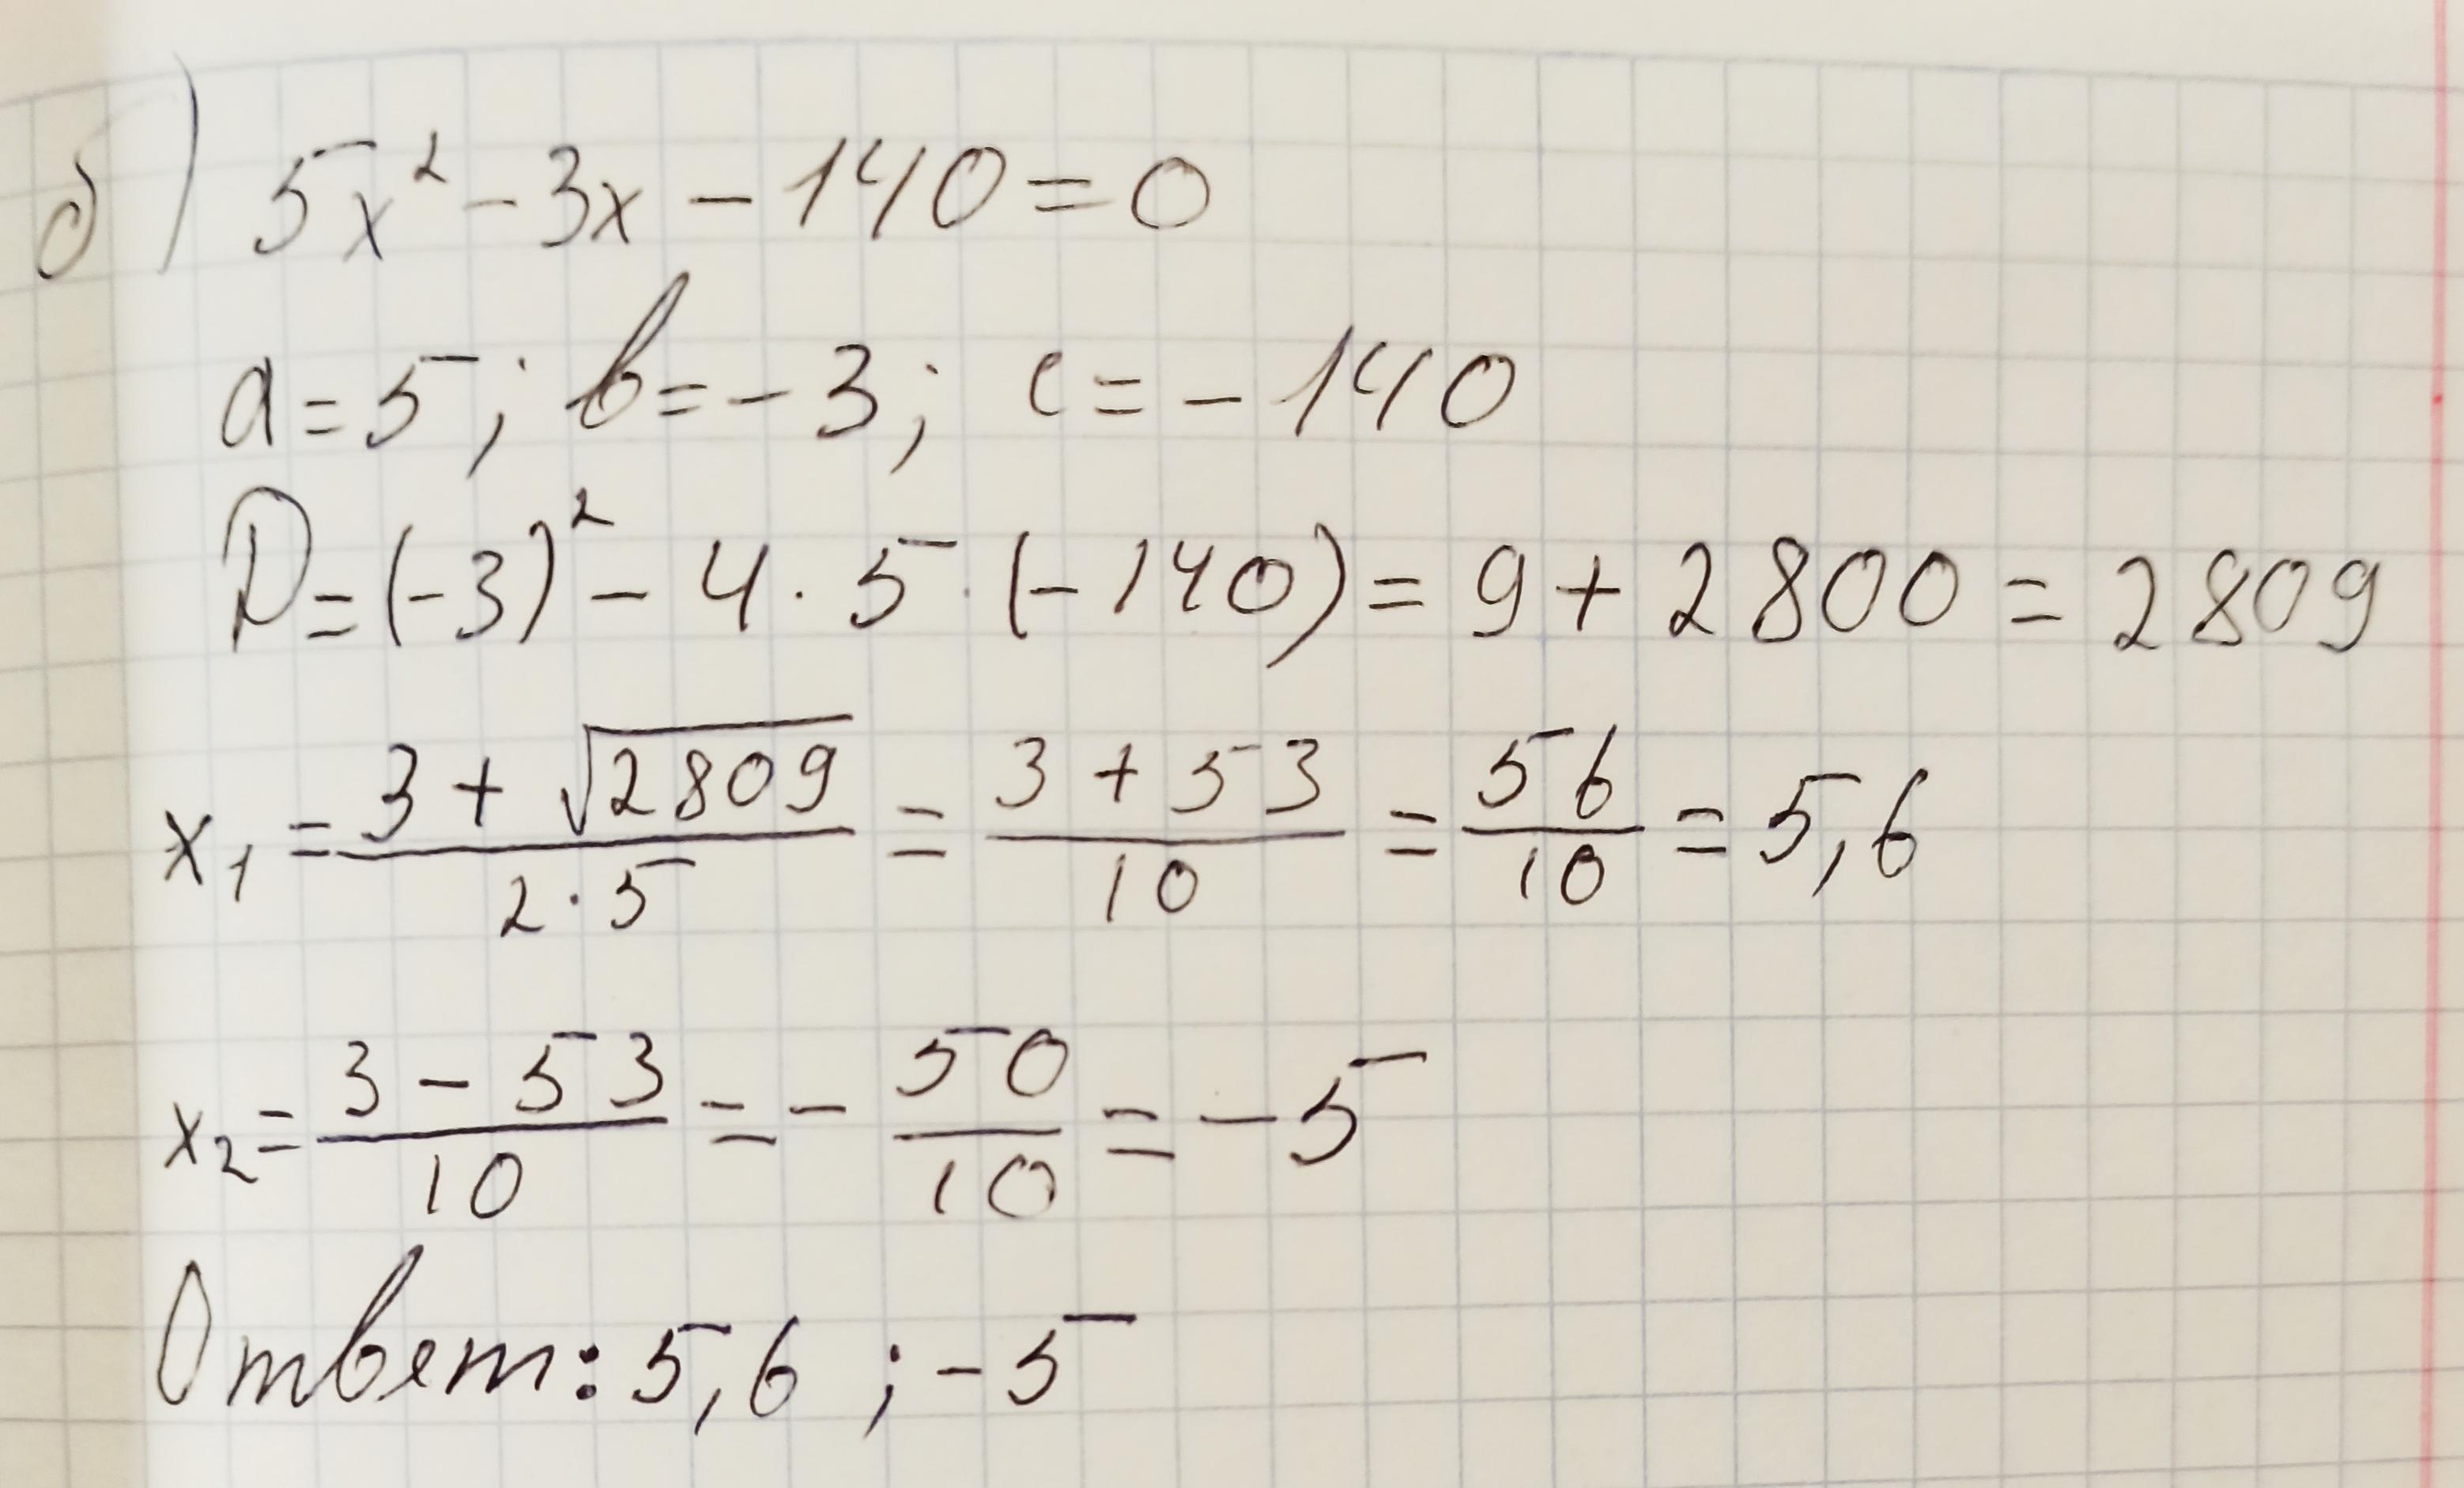 б) 5x² - 3x - 140 = 0
a = 5; b = -3; c = -140
D = (-3)² - 4 · 5 · (-140) = 9 + 2800 = 2809
x₁ = (3 + √2809)/(2 · 5) = (3 + 53)/10 = 56/10 = 5,6
x₂ = (3 - 53)/10 = - 50/10 = -5
Ответ: 5,6 ; -5